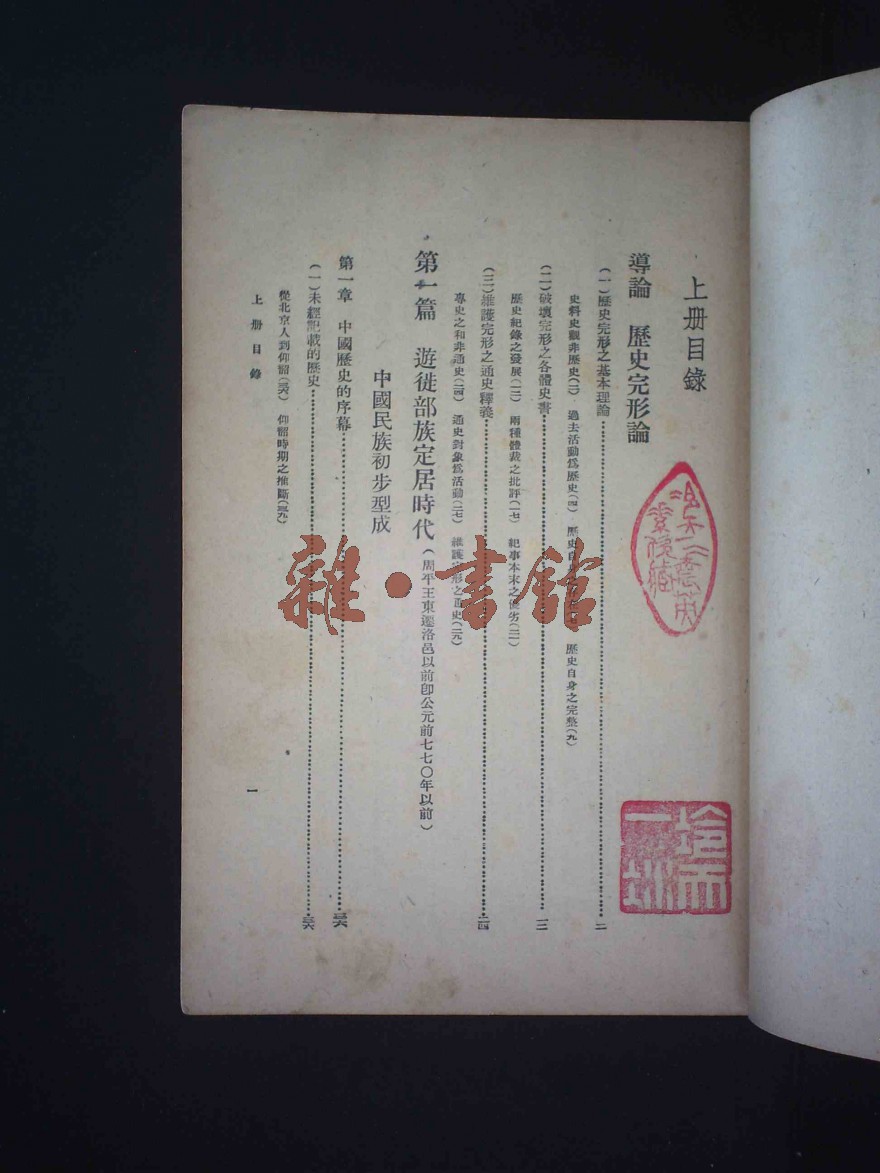 上册目錄
導論　歷史完形論
(一)歷史完形之基本理論……二
史料史觀非歷史(二)　過去活動爲歷史(四)　歷史自　歷史自身之完整(九)
(二)破壞完形之各體史書……一二
歷史紀錄之發展(一二)　兩種體裁之批評(一七)　紀事本末之優劣(二一)
(三)維護完形之通史釋義……二四
專史之和非通史(二四)　通史對象爲活動(二七)　維護完形之通史(二九)
第一篇　遊徙部族定居時代(周平王東遷洛邑以前卽公元前七七〇年以前)
中國民族初步型成
第一章　中國歷史的序幕……三六
(一)未經記載的歷史……三六
從北京人到仰韶(三六)　仰韶時期之推斷(三九)
上册目錄
一
雜·書館